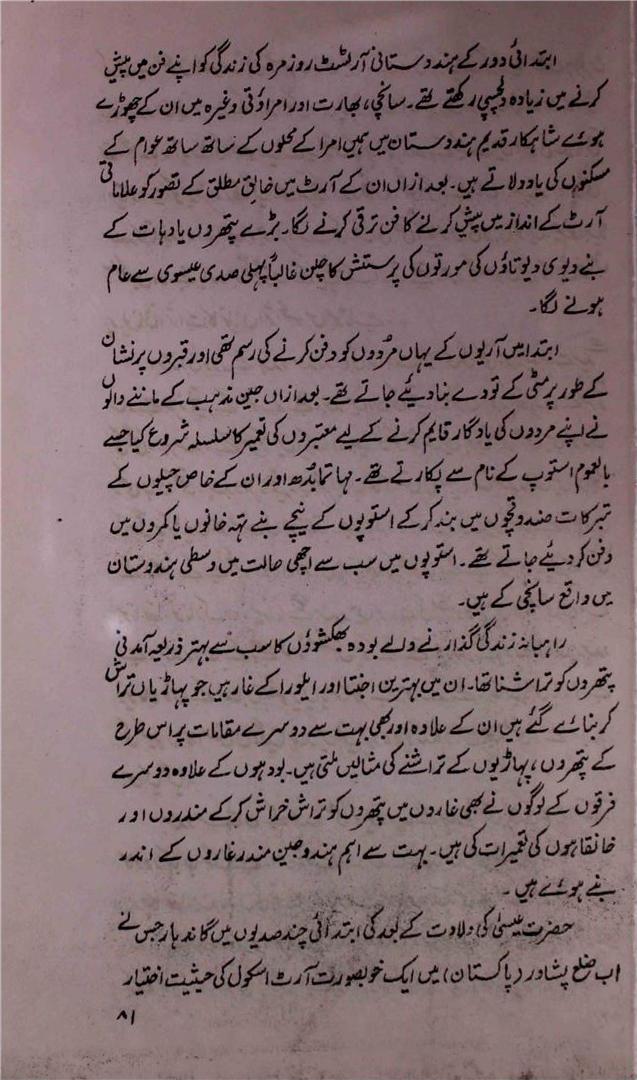 ابتدائی دور کے ہندوستانی آرٹسٹ روزمرہ کی زندگی کو اپنے فن میں پیش
کرنے میں زیادہ دلچسپی رکھتے تھے۔ سانچی، بھارت اور امراؤتی وغیرہ میں ان کے چھوڑے
ہوئے شاہکار قدیم ہندوستان میں ہمیں امرا کے محلوں کے ساتھ ساتھ عوام کے
مسکنوں کی یاد دلاتے ہیں۔ بعد ازاں ان کے آرٹ میں خالق مطلق کے تصور کو علاماتی
آرٹ کے انداز میں پیش کرنے کا فن ترقی کرنے لگا۔ بڑے پتھروں یا دہات کے
بنے دیوی دیوتاؤں کی مورتوں کی پرستش کا چلن غالباً پہلی صدی عیسوی سے عام
ہونے لگا۔
ابتدا میں آریوں کے یہاں مردوں کو دفن کرنے کی رسم تھی اور قبروں پر نشان
کے طور پر مٹی کے تودے بنا دیئے جاتے تھے۔ بعد ازاں جین مذہب کے ماننے والوں
نے اپنے مردوں کی یادگار قایم کرنے کے لیے مقبروں کی تعمیر کا سلسلہ شروع کیا جسے
بالعموم استوپ کے نام سے پکارتے تھے۔ مہاتما بُدھ اور ان کے خاص چیلوں کے
تبرکات صندوقچوں میں بند کر کے استوپوں کے نیچے بنے تہہ خانوں یا کمروں میں
دفن کر دیئے جاتے تھے۔ استوپوں میں سب سے اچھی حالت میں وسطی ہندوستان
میں واقع سانچی کے ہیں۔
راہبانہ زندگی گذارنے والے بودہ بھکشوؤں کا سب سے بہتر ذریعہ آمدنی
پتھروں کو تراشنا تھا۔ ان میں بہترین اجنتا اور ایلورا کے غار ہیں جو پہاڑیاں تراش
کر بنائے گئے ہیں ان کے علاوہ اور بھی بہت سے دوسرے مقامات پر اس طرح
کے پتھروں، پہاڑیوں کے تراشنے کی مثالیں ملتی ہیں۔ بودہوں کے علاوہ دوسرے
فرقوں کے لوگوں نے بھی غاروں میں پتھروں کو تراش خراش کر کے مندروں اور
خانقاہوں کی تعمیرات کی ہیں۔ بہت سے اہم ہندو جین مندر غاروں کے اندر
بنے ہوئے ہیں۔
حضرت عیسیٰ کی ولادت کے بعد کی ابتدائی چند صدیوں میں گاندہار جس نے
اب ضلع پشاور (پاکستان) میں ایک خوبصورت آرٹ اسکول کی حیثیت اختیار
۸۱